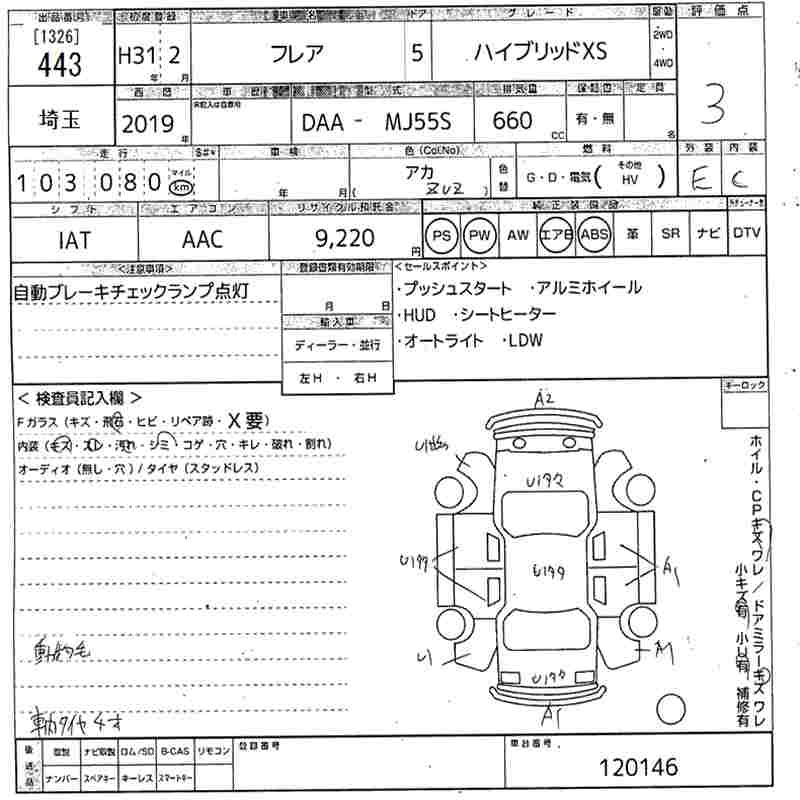 出品番号 初度登録 車名 ドア グレード 駆動 評価点
[1326]
443 H31年 2月 フレア 5 ハイブリッドXS 2WD・4WD 3
西暦 車歴 型式 排気量 保証書 定員
埼玉 2019年 未記入は自家用 DAA - MJ55S 660cc 有・無 名
走行 車検 色 (Col.No) 燃料 外装 内装
103080 マイル km 年 月 アカ ( ) 色替 G・D・電気( その他 HV ) E C
シフト エアコン リサイクル預託金 純正装備品
IAT AAC 9,220円 PS PW AW エアB ABS 革 SR ナビ DTV
<注意事項> 登録書類有効期限 <セールスポイント>
自動ブレーキチェックランプ点灯 ・プッシュスタート ・アルミホイール
月 日
・HUD ・シートヒーター
輸入車
ディーラー・並行 ・オートライト ・LDW
左H ・ 右H
< 検査員記入欄 > キーロック
Fガラス (キズ・飛石・ヒビ・リペア跡・X要)
内装 (キズ・スレ・汚れ・シミ・コゲ・穴・キレ・破れ・割れ)
オーディオ (無し・穴) / タイヤ (スタッドレス)
A2
U192
U199 U199 A1
U1 U199 A1
A1
ホイル・CPキズワレ / ドアミラーキズワレ
小キズ有 小U有 補修有
後送品 取説 ナビ取説 ロム/SD B-CAS リモコン 登録番号 車台番号
ナンバー スペアキー キーレス スマートキー 120146